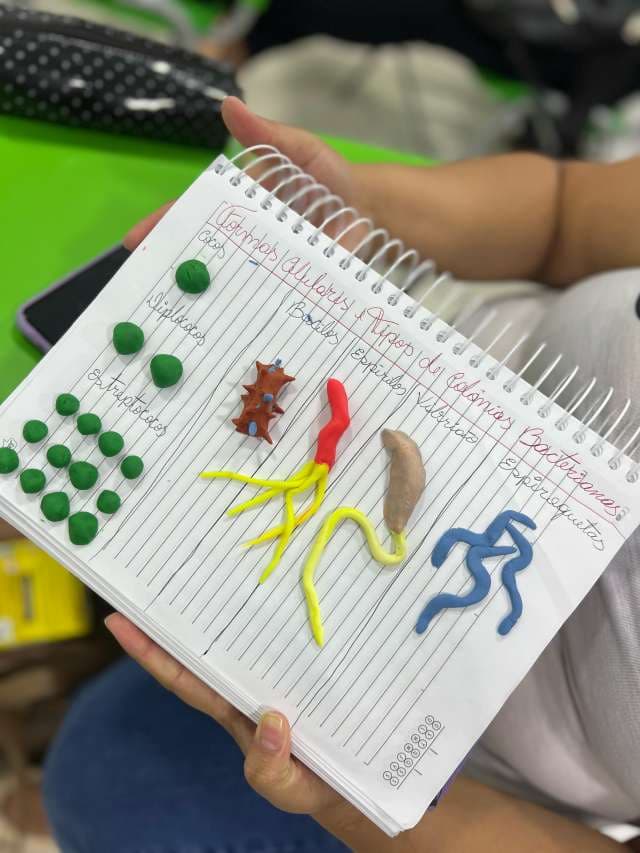 Formas Celulares e Tipos de Colônias Bacterianas.
cocos
Diplococos
estreptococos
Bacilos
Espirilos
Vibrião
Espiroquetas